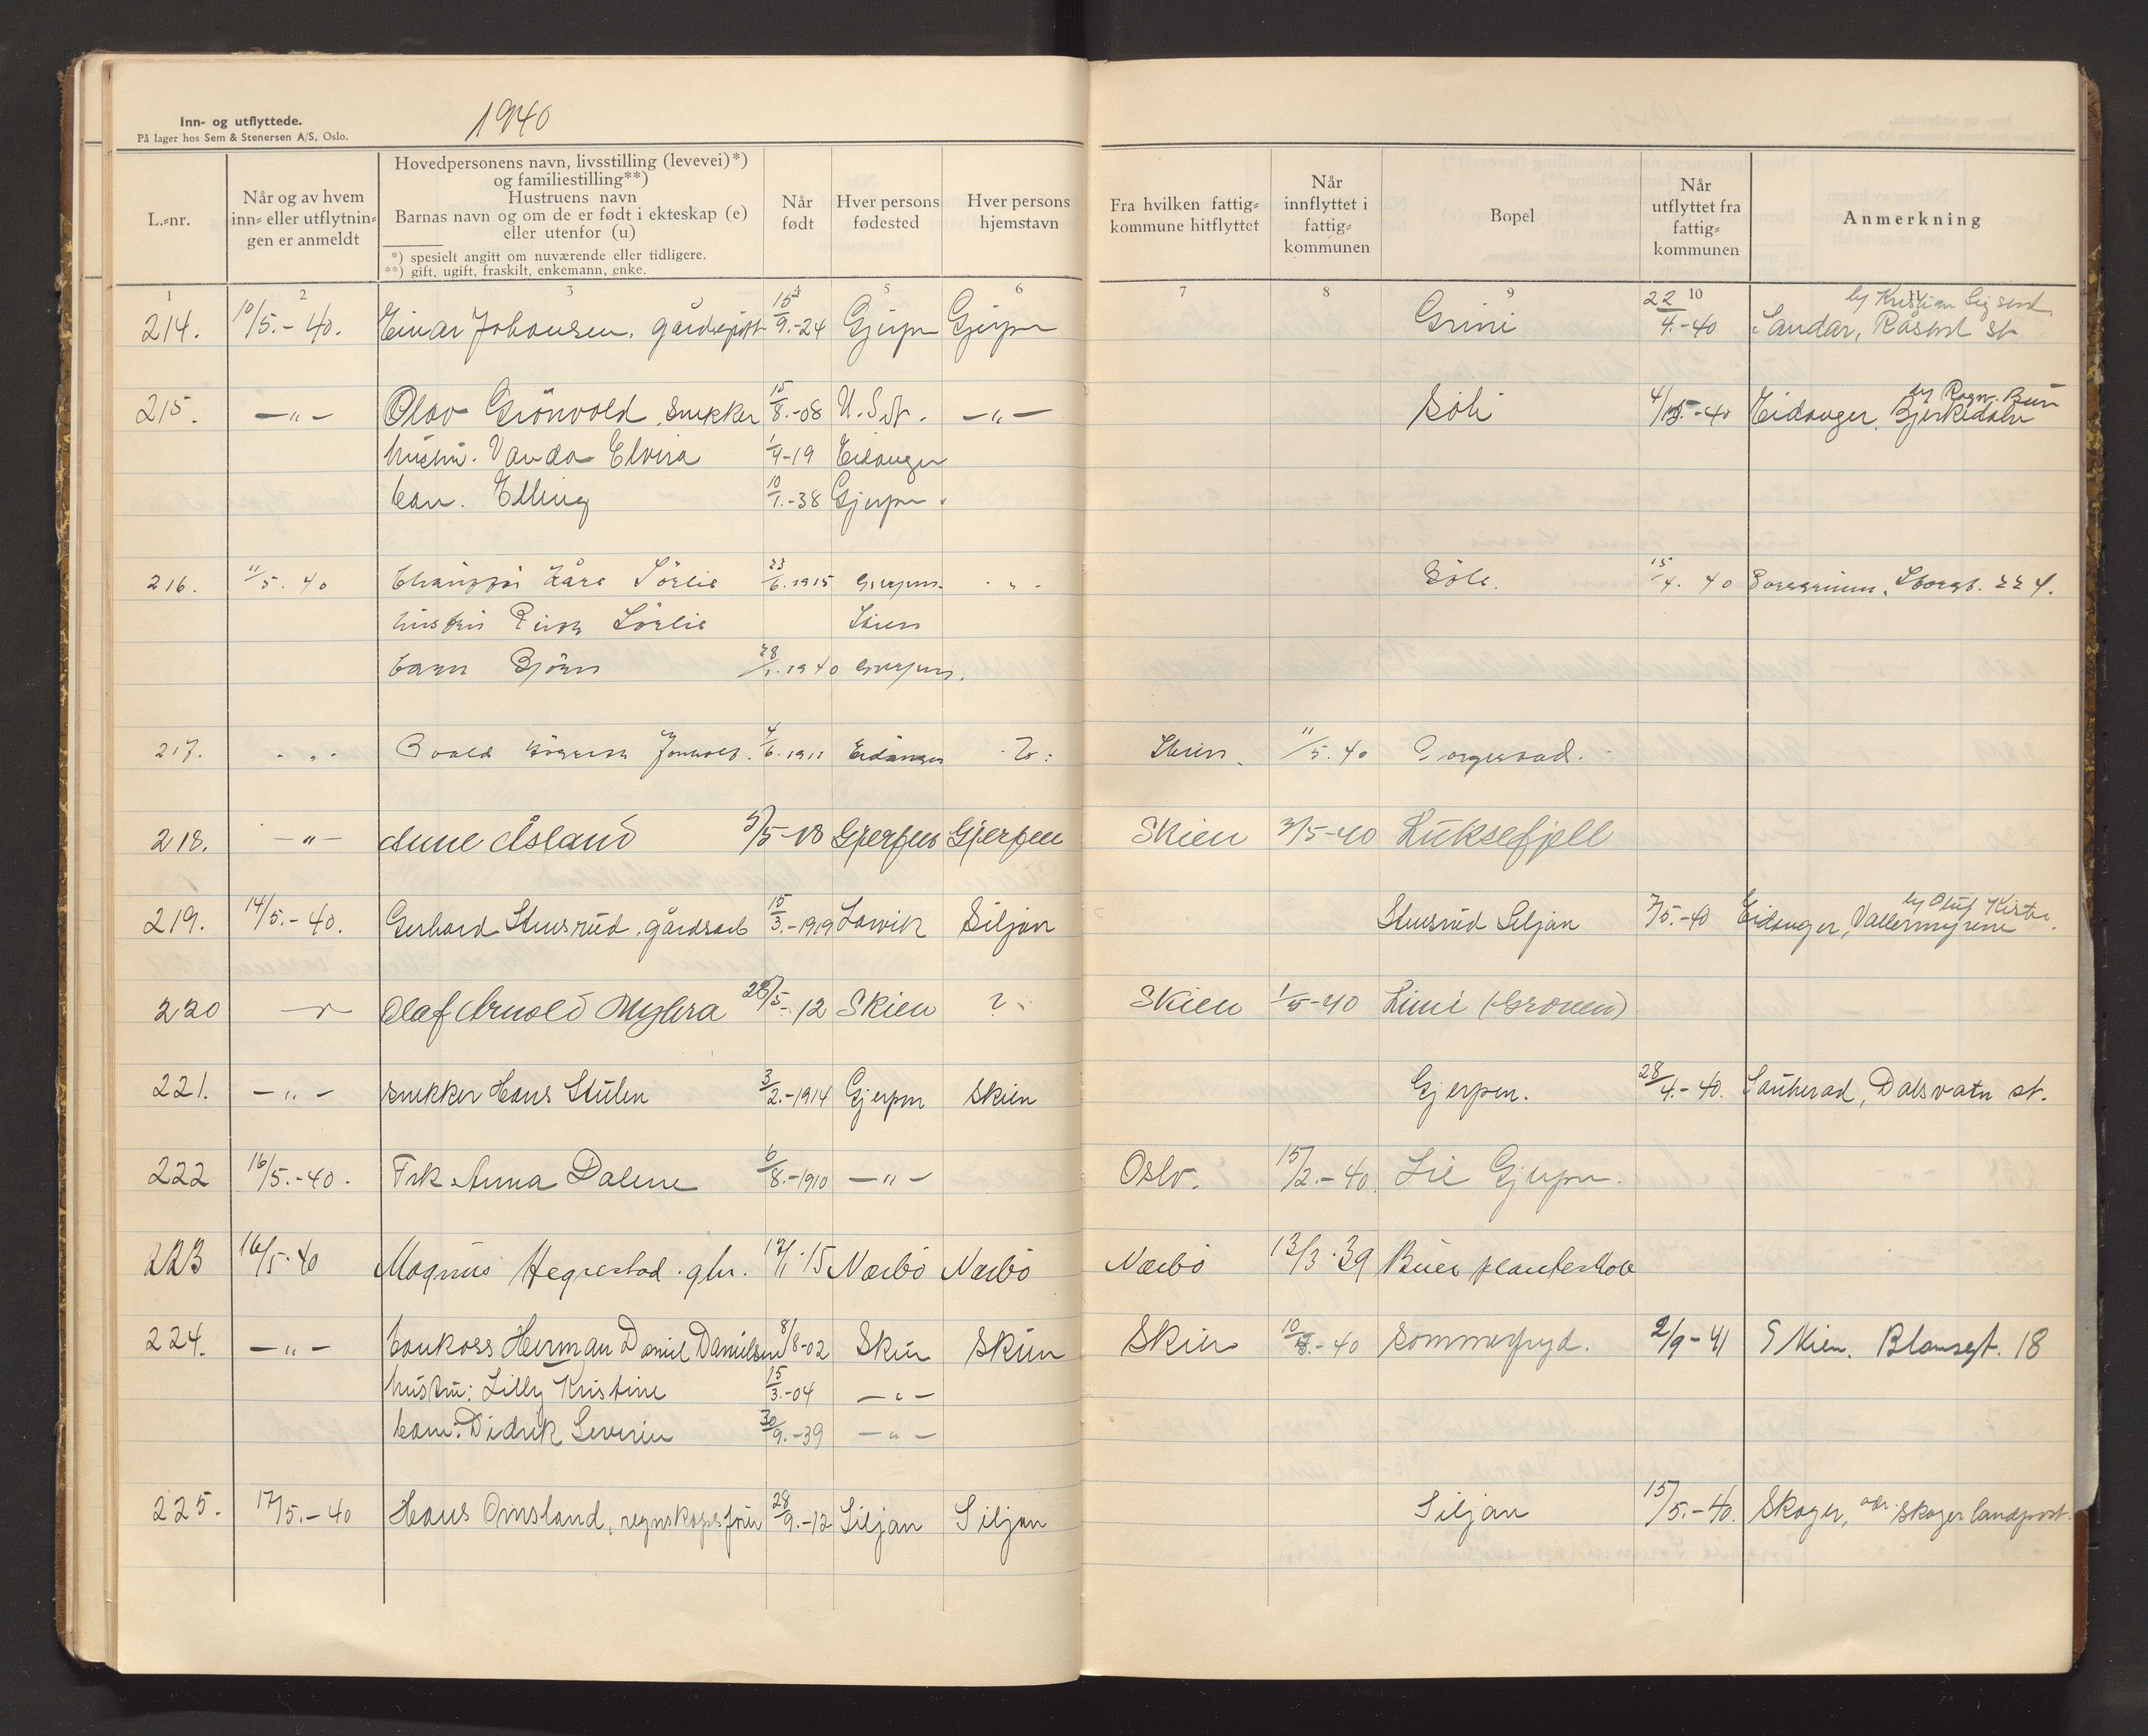 Inn- og utflyttede.
På lager hos Sem & Stenersen A/S, Oslo.
1940
L.-nr.
Når og av hvem
inn- eller utflytnin-
gen er anmeldt
Hovedpersonens navn, livsstilling (levevei)*)
og familiestilling**)
Hustruens navn
Barnas navn og om de er født i ekteskap (e)
eller utenfor (u)
*) spesielt angitt om nuværende eller tidligere.
**) gift, ugift, fraskilt, enkemann, enke.
Når
født
Hver persons
fødested
Hver persons
hjemstavn
Fra hvilken fattig-
kommune hitflyttet
Når
innflyttet i
fattig-
kommunen
Bopel
Når
utflyttet fra
fattig-
kommunen
Anmerkning
1 2 3 4 5 6 7 8 9 10 11
214. 10/5.-40. Einar Johansen, 15/9.-24 Gjerpen Gjerpen Grini 22/4.-40 Sandar, Råstad st
215. -"- Olav Grönvold, snekker 15/8.-08 -"- Böli Eidanger, by Ragn. Buer Bjerkedalen
hustru. Vanda Elvira 1/4-19 Eidanger
barn. Elling 10/1.-38 Gjerpen.
216. 11/5. 40 Kåre Sörlie 23/6.1915 Gjerpen. -"- Böle. 15/4. 40 Porsgrunn, Storgt. 224.
hustru Sörlie Skien
barn Björn 28/1.1940 Gjerpen.
217. -"- 4/6.1911 Eidanger ? Skien. 11/5. 40 Borgestad.
218. -"- Anne Åsland 3/5-18 Gjerpen Gjerpen Skien 3/5-40 Luksefjell
219. 14/5.-40. Gerhard Stusrud, gårdsarb 15/3.-1919 Larvik Siljan Stusrud Siljan 7/5.-40 Eidanger, Vallermyrene
220 -"- Olaf Arnold Myhra 28/5-12 Skien ? Skien 1/5-40 Limi (Gronen)
221. -"- snekker Hans Stulen 3/2.-1914 Gjerpen Skien Gjerpen. 28/4.-40. Sauherad, Dalsvatn st.
222 16/5.-40. Frk. Anna Dalene 6/8.-1910 -"- Oslo. 15/2.-40. Lie Gjerpen.
223 16/5.40 Magnus Hegrestad. 17/11.15 Nærbö Nærbö Nærbö 13/3.39 Bues planteskole
224. -"- bankass Herman Daniel Danielsen 8/8-02 Skien Skien Skien 40 Sommerfryd. 2/9-41 Skien. 18
hustru: Lilly Kristine 15/3.-04 -"-
barn: Didrik Severin 30/9.-39 -"-
225. 17/5.-40 Hans Omsland, regnskapsfører 28/9.-12 Siljan Siljan Siljan 15/5.-40. Skoger, adr. Skoger landpost.